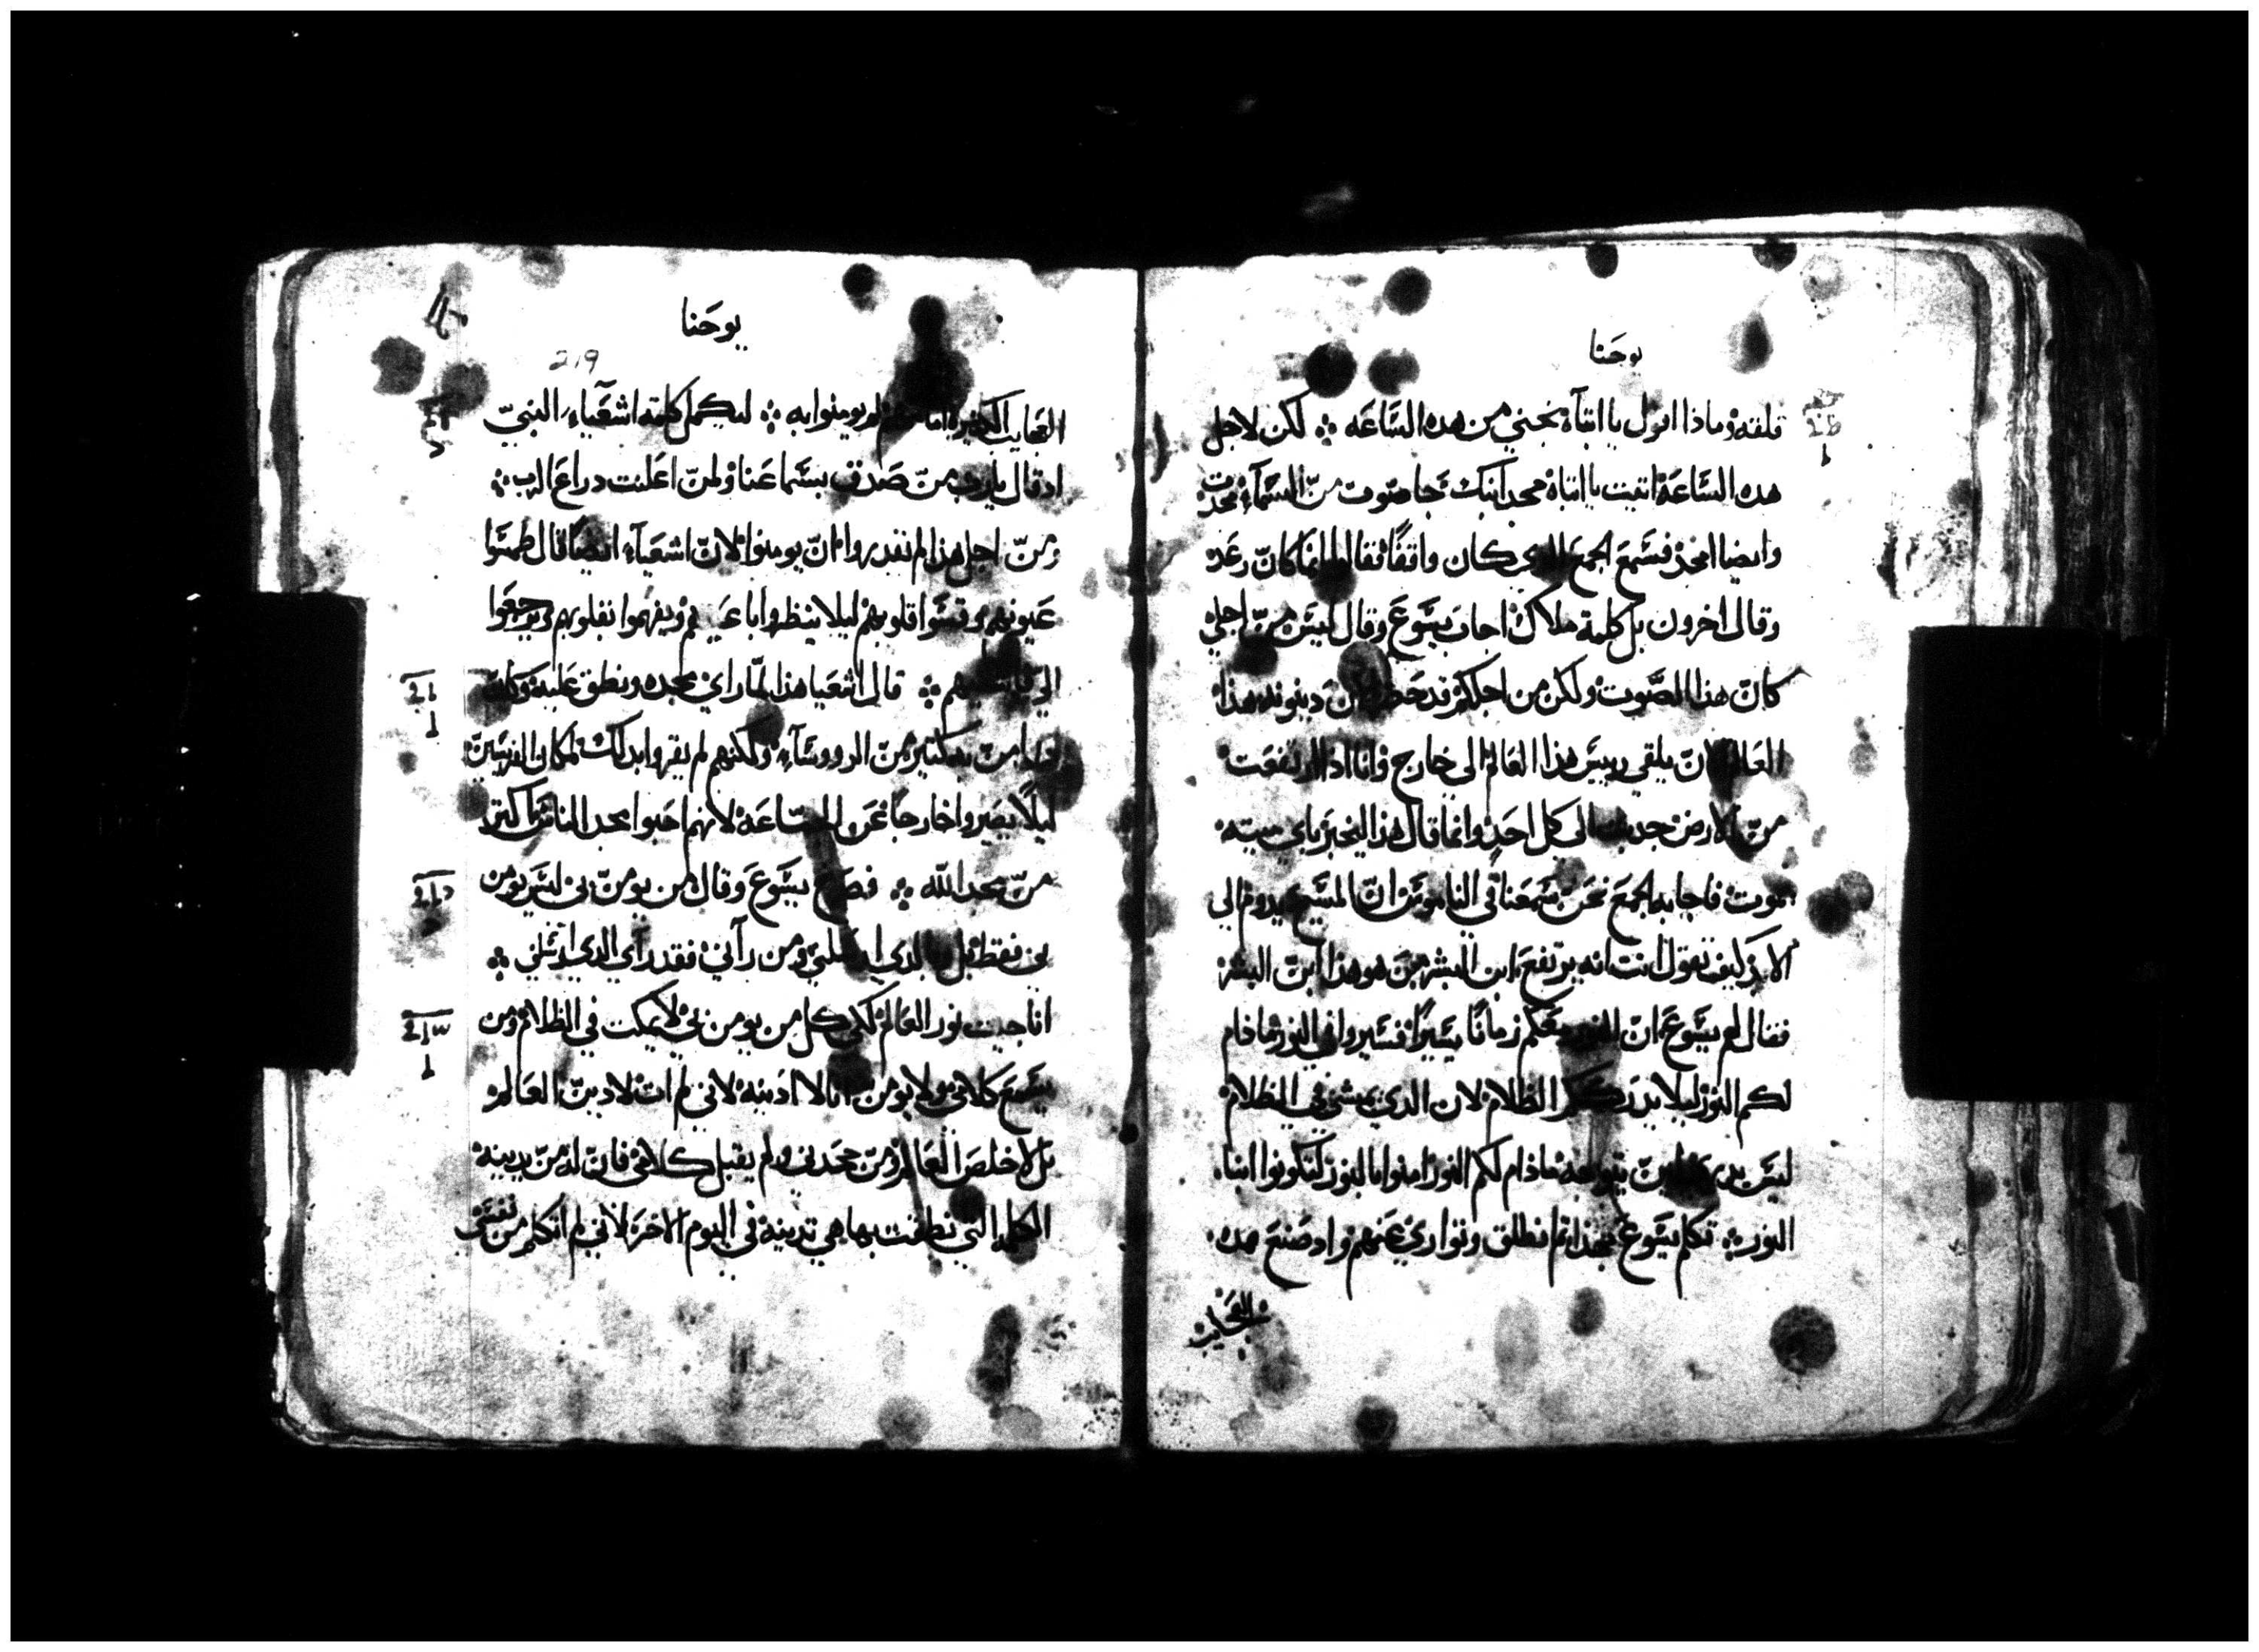 يوحنا
قلقه وماذا اقول يا ابتاه نجني من هده الساعه ܀ لكن لاجل
هده الساعة اتيت يا ابتاه مجد ابنك فجا صوت من السمآء مجدت
وايضا امجد فسمع الجمع الدي كان واقفا فقالوا انما كان رعد
وقال اخرون بل كلمة ملاك اجاب يسوع وقال ليس من اجلي
كان هذا الصوت ولكن من اجلكم قد حضرت الان دينونه هذا
العالم الان يلقي رييس هذا العالم الي خارج وانا ادا ارتفعت
من الارض جدبت الي كل احد وانما قال هذا ليخبر باي ميته
يموت فاجابه الجمع نحن سمعنا في الناموس ان المسيح يدوم الي
الابد كيف تقول انت انه يرتفع ابن البشر من هو هذا ابن البشر
فقال لهم يسوع ان النور معكم زمانا يسيرا فسيروا في النور ما دام
لكم النور ليلا يدرككم الظلام لان الدي يمشي في الظلام
ليس يدري اين يتوجه ما دام لكم النور امنوا بالنور لتكونوا ابنا
النور ܀ تكلم يسوع بهذا ثم انطلق وتواري عنهم واد صنع هده
العجايب
يوحنا
219
العجايب الكثيره امامهم لم يومنوا به ܀ ليكمل كلمة اشعياء النبي
اد قال يا رب من صدق بسماعنا ولمن اعلنت دراع الرب ܀
ومن اجل هذا لم يقدروا ان يومنوا لان اشعيآء ايضا قال طمسوا
عيونهم وقسوا قلوبهم ليلا ينظروا باعينهم ويفهموا بقلوبهم ويرجعوا
الي فاشفيهم ܀ قال اشعيا هذا لما راي مجده ونطق عليه وكان
امن به كتير من الرووسآء ولكنهم لم يقروا بدلك لمكان الفريسين
ليلا يصيروا خارجا عن الجماعه لانهم احبوا مجد الناس اكتر
من مجد الله ܀ فصاح يسوع وقال من يومن بي ليس يومن
بي فقط بل وبالدي ارسلني ومن رآني فقد راي الدي ارسلني ܀
انا جيت نور العالم لكي كل من يومن بي لا يمكت في الظلام ومن
يسمع كلامي ولا يومن انا لا ادينه لاني لم ات لادين العالم
بل لاخلص العالم ومن جحدني ولم يقبل كلامي فان له من يدينه
الكلمه التي نطقت بها هي تدينه في اليوم الاخر لاني لم اتكلم من نفسي